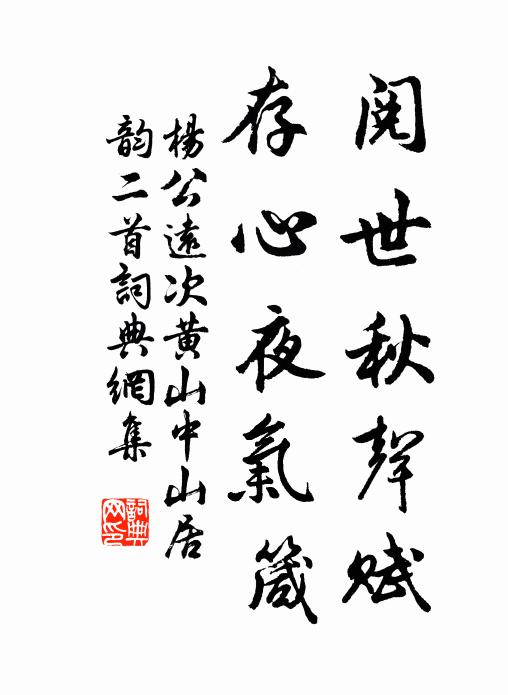 閱世秋聲賦
存心夜氣箴
楊公遠次黃山中山居
韵二首詞典網集
詞典
网印